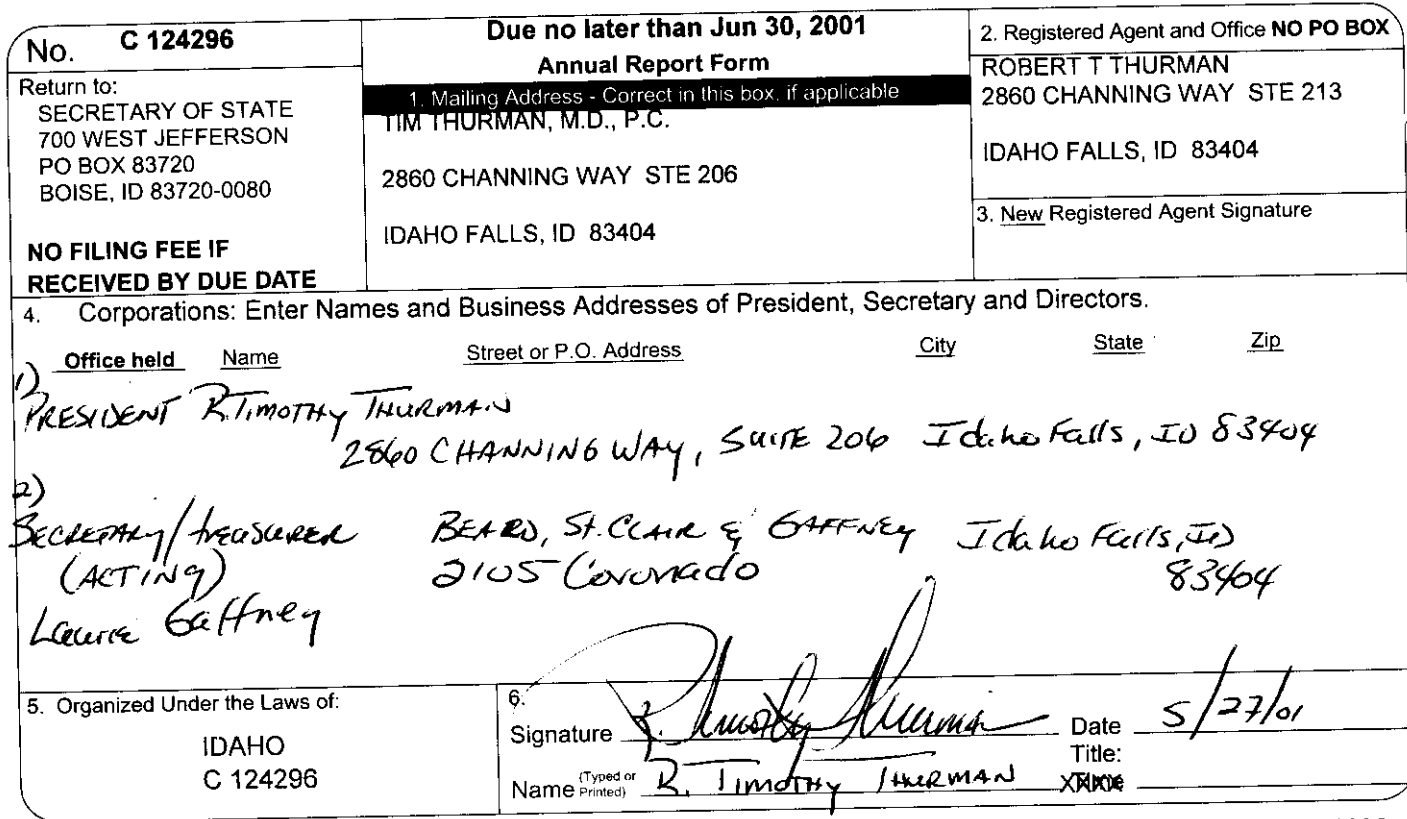 No. C 124296
Return to:
SECRETARY OF STATE
700 WEST JEFFERSON
PO BOX 83720
BOISE, ID 83720-0080
NO FILING FEE IF
RECEIVED BY DUE DATE
Due no later than Jun 30, 2001
Annual Report Form
1. Mailing Address - Correct in this box, if applicable
TIM THURMAN, M.D., P.C.
2860 CHANNING WAY STE 206
IDAHO FALLS, ID 83404
2. Registered Agent and Office NO PO BOX
ROBERT T THURMAN
2860 CHANNING WAY STE 213
IDAHO FALLS, ID 83404
3. New Registered Agent Signature
4. Corporations: Enter Names and Business Addresses of President, Secretary and Directors.
Office held Name Street or P.O. Address City State Zip
1)
PRESIDENT R. TIMOTHY THURMAN
2860 CHANNING WAY, SUITE 206 Idaho Falls, ID 83404
2)
SECRETARY/treasurer BEARD, St. CLAIR & GAFFNEY Idaho Falls, ID
(ACTING) 2105 Coronado 83404
Laurie Gaffney
5. Organized Under the Laws of:
IDAHO
C 124296
6.
Signature R. Timothy Thurman Date 5/27/01
Name (Typed or Printed) R. TIMOTHY THURMAN Title: